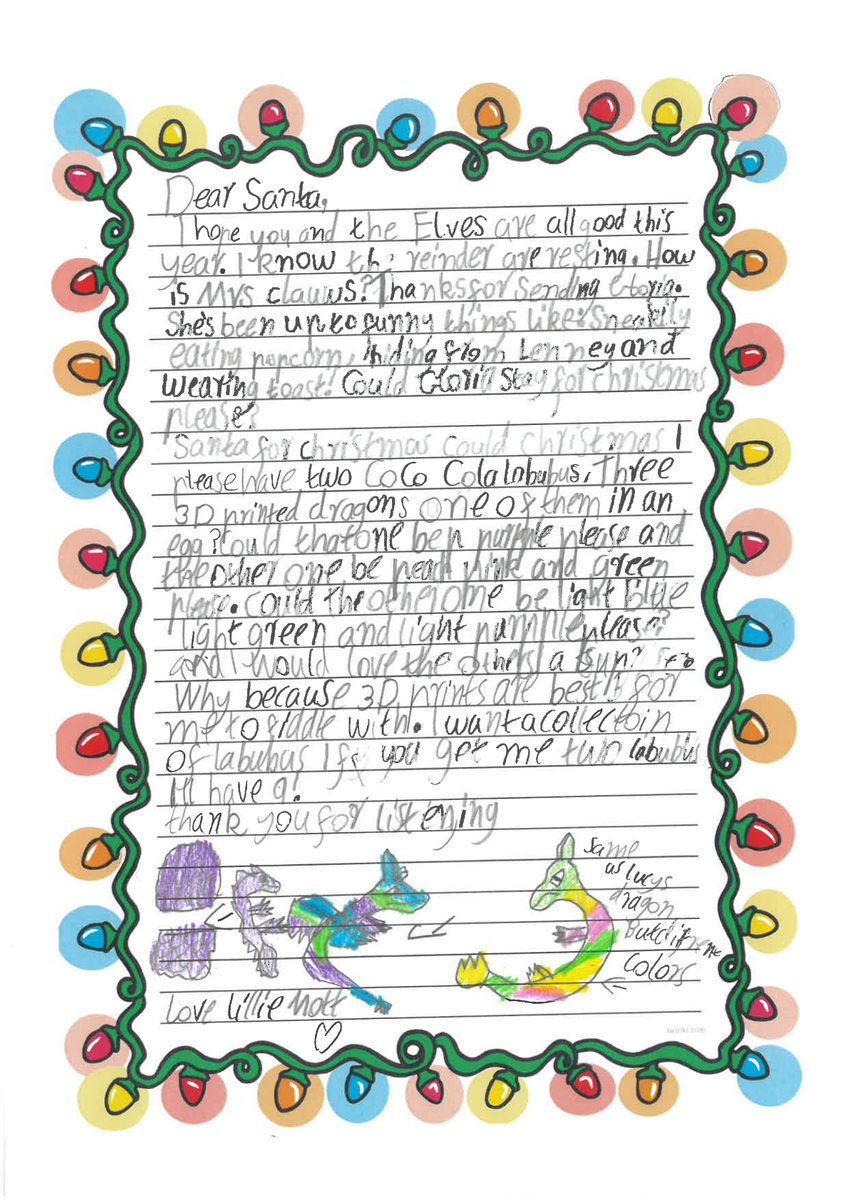 Dear Santa,
I hope you and the Elves are all good this
year. I know the reinder are resting. How
is Mrs clauws? Thanks for sending Gloria.
She's been up to funny things like: Sneakily
eating popcorn, hiding from Lenney and
wearing toast! Could Gloria Stay for christmas
please?
Santa for christmas could christmas I
please have two Coco Cola labubus, Three
3D printed dragons one of them in an
egg? Could that one be purple please and
the other one be peach pink and green
please. Could the other ome be light blue
light green and light purmple please?
and I would love the others a
Why because 3D prints are best for
me to fiddle with. I want a collectoin
of labubus If you get me two labubus
I'll have 9!
thank you for listening
Same
as lucys
dragon
But different
Colors
Love Lillie Mott
twinkl.com